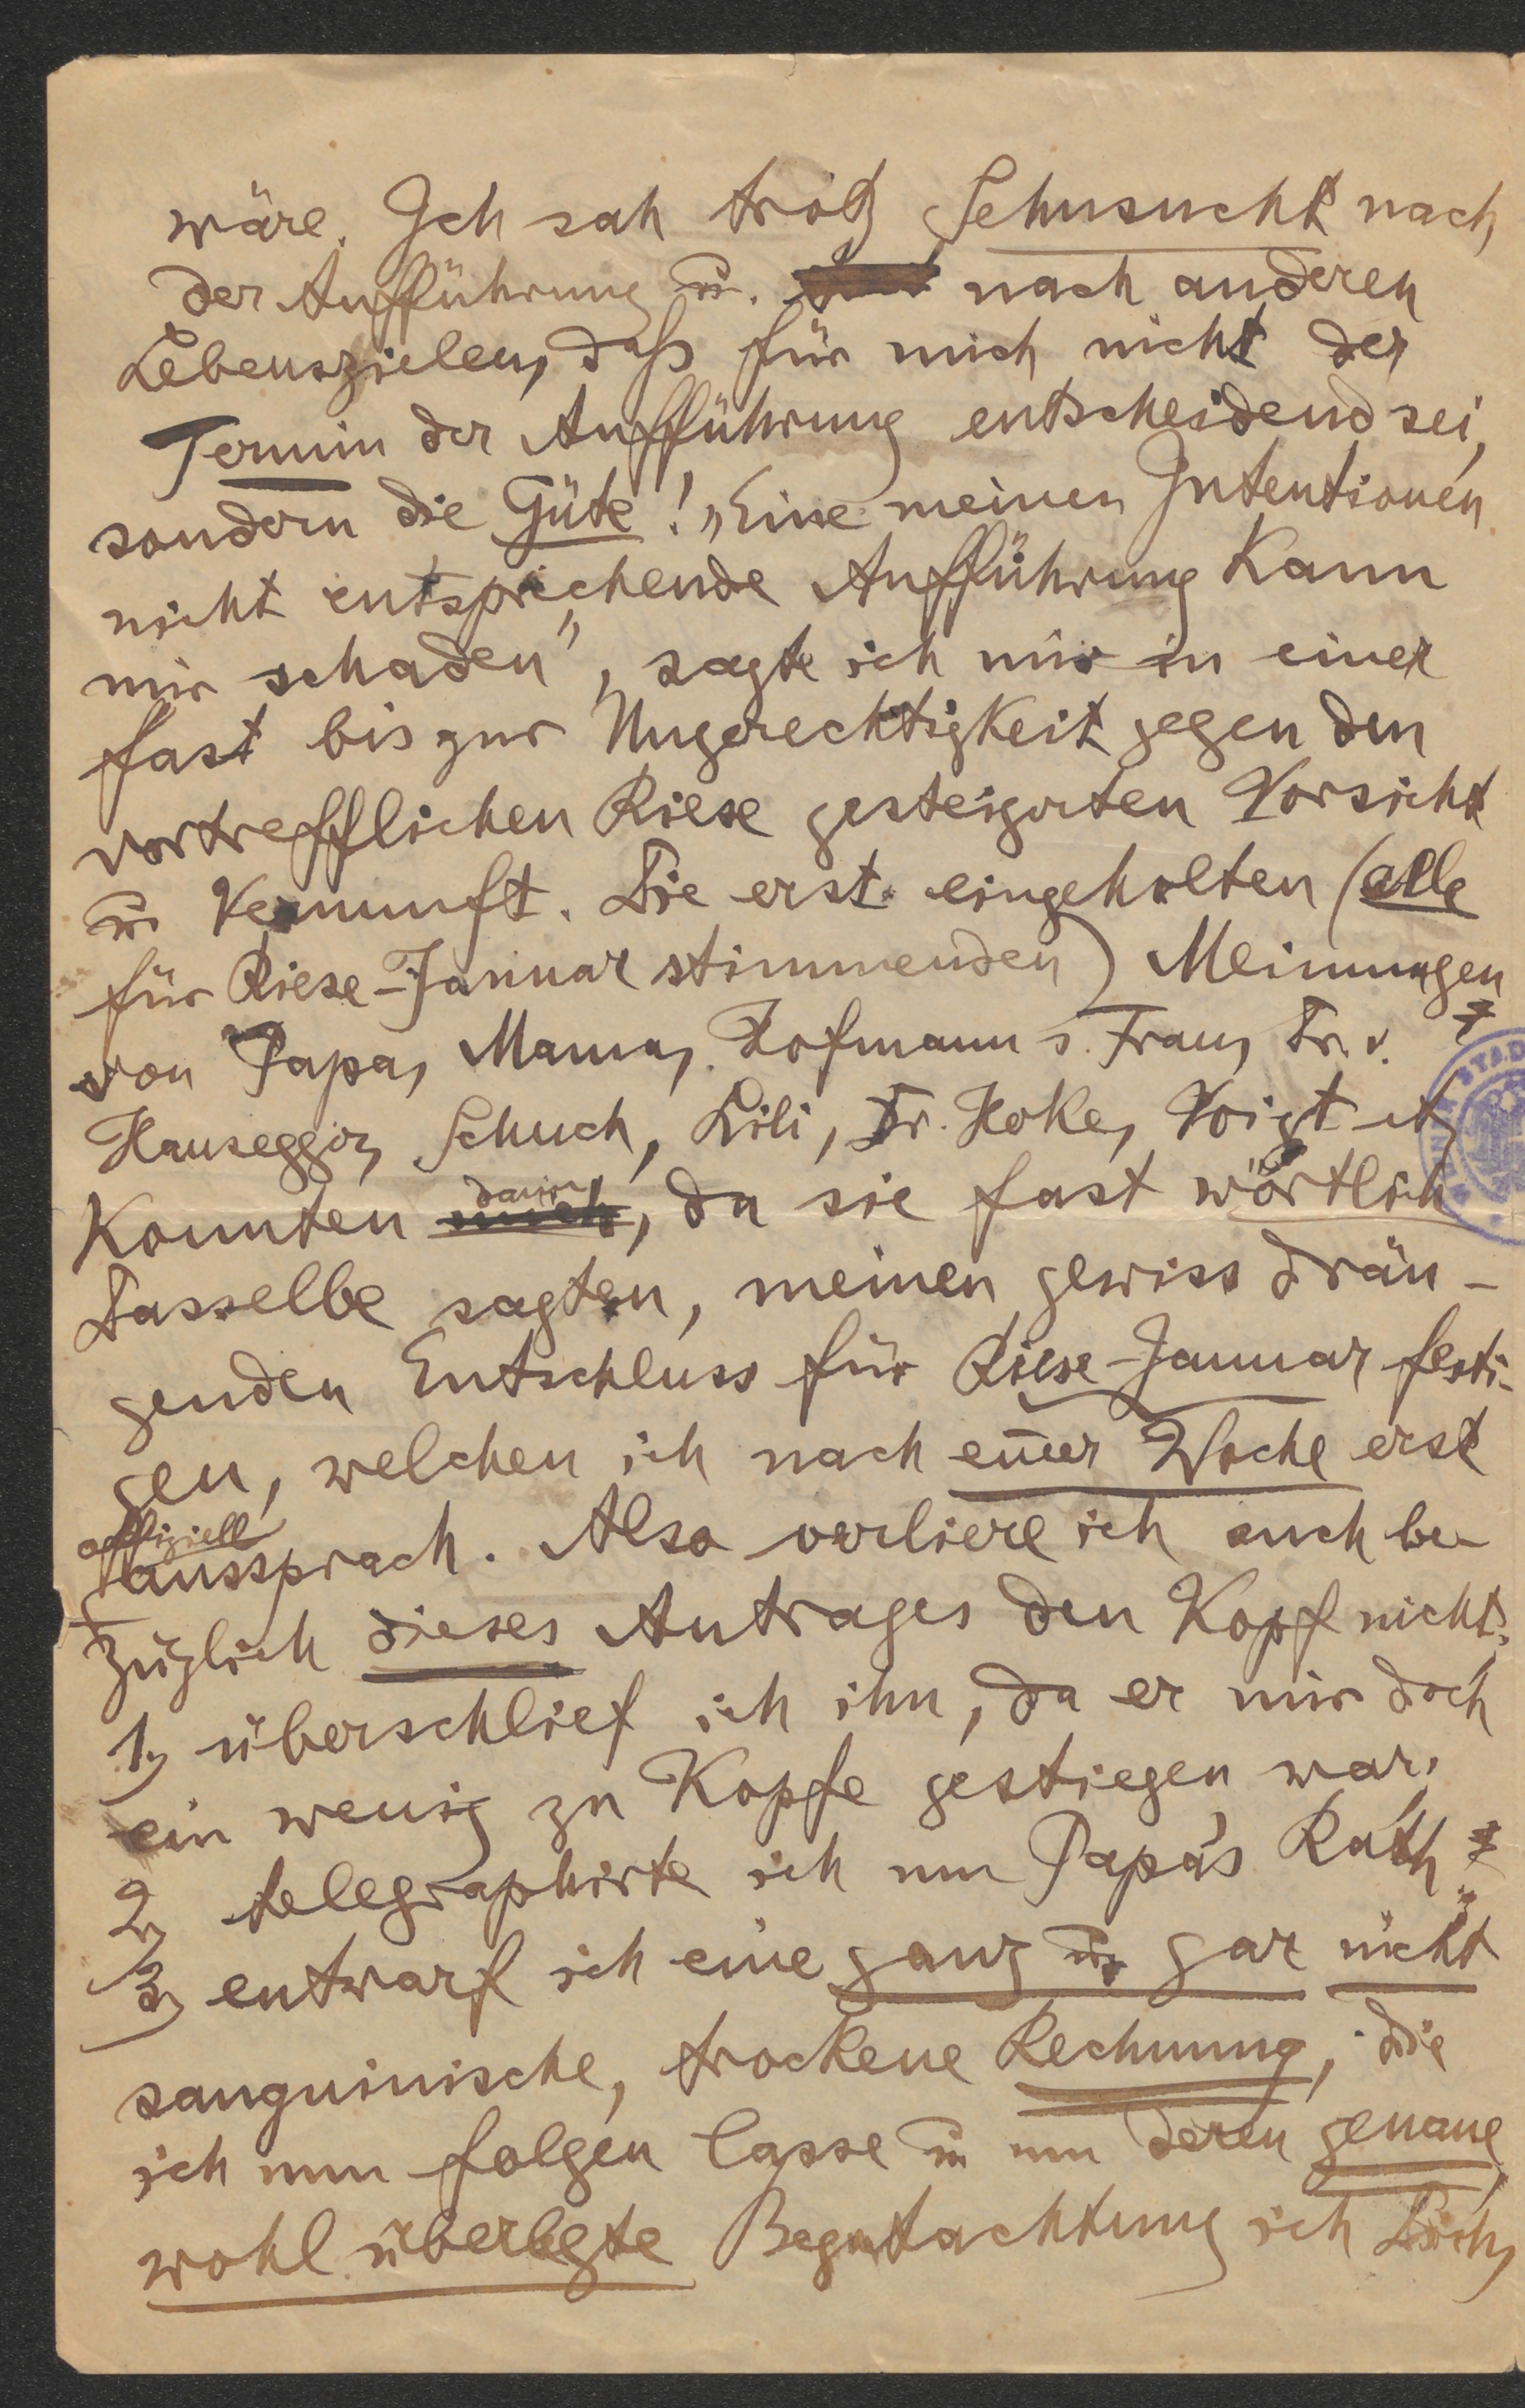 wäre. Ich sah trotz Sehnsucht nach
der Aufführung u. nach anderen
Lebenszielen, daß für mich nicht der
Termin der Aufführung entscheidend sei,
sondern die Güte! „Eine meinen Intentionen
nicht entsprechende Aufführung kann
mir schaden", sagte ich mir in einer
fast bis zur Ungerechtigkeit gegen den
vortrefflichen Riese gesteigerten Vorsicht
u. Vernunft. Die erst eingeholten (alle
für Riese-Januar stimmenden) Meinungen
von Papa, Mama, Hofmann s. Frau, Fr. v.
Hausegger, Schuch, Lili, Dr. Hoke, Voigt etz
konnten dann, da sie fast wörtlich
Dasselbe sagten, meinen gewiss drän-
genden Entschluss für Riese-Januar festi-
gen, welchen ich nach einer Woche erst
offiziell
aussprach. Also verliere ich auch be-
züglich dieses Antrages den Kopf nicht:
1, überschlief ich ihn, da er mir doch
ein wenig zu Kopfe gestiegen war,
2, telegraphirte ich um Papa's Rath
3, entwarf ich eine ganz u. gar nicht
sanguinische, trockene Rechnung, die
ich nun folgen lasse u. um deren genaue,
wohl überlegte Begutachtung ich Dich,